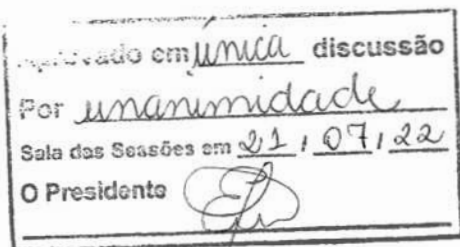 Aprovado em única discussão
Por unanimidade
Sala das Sessões em 21 / 07 / 22
O Presidente